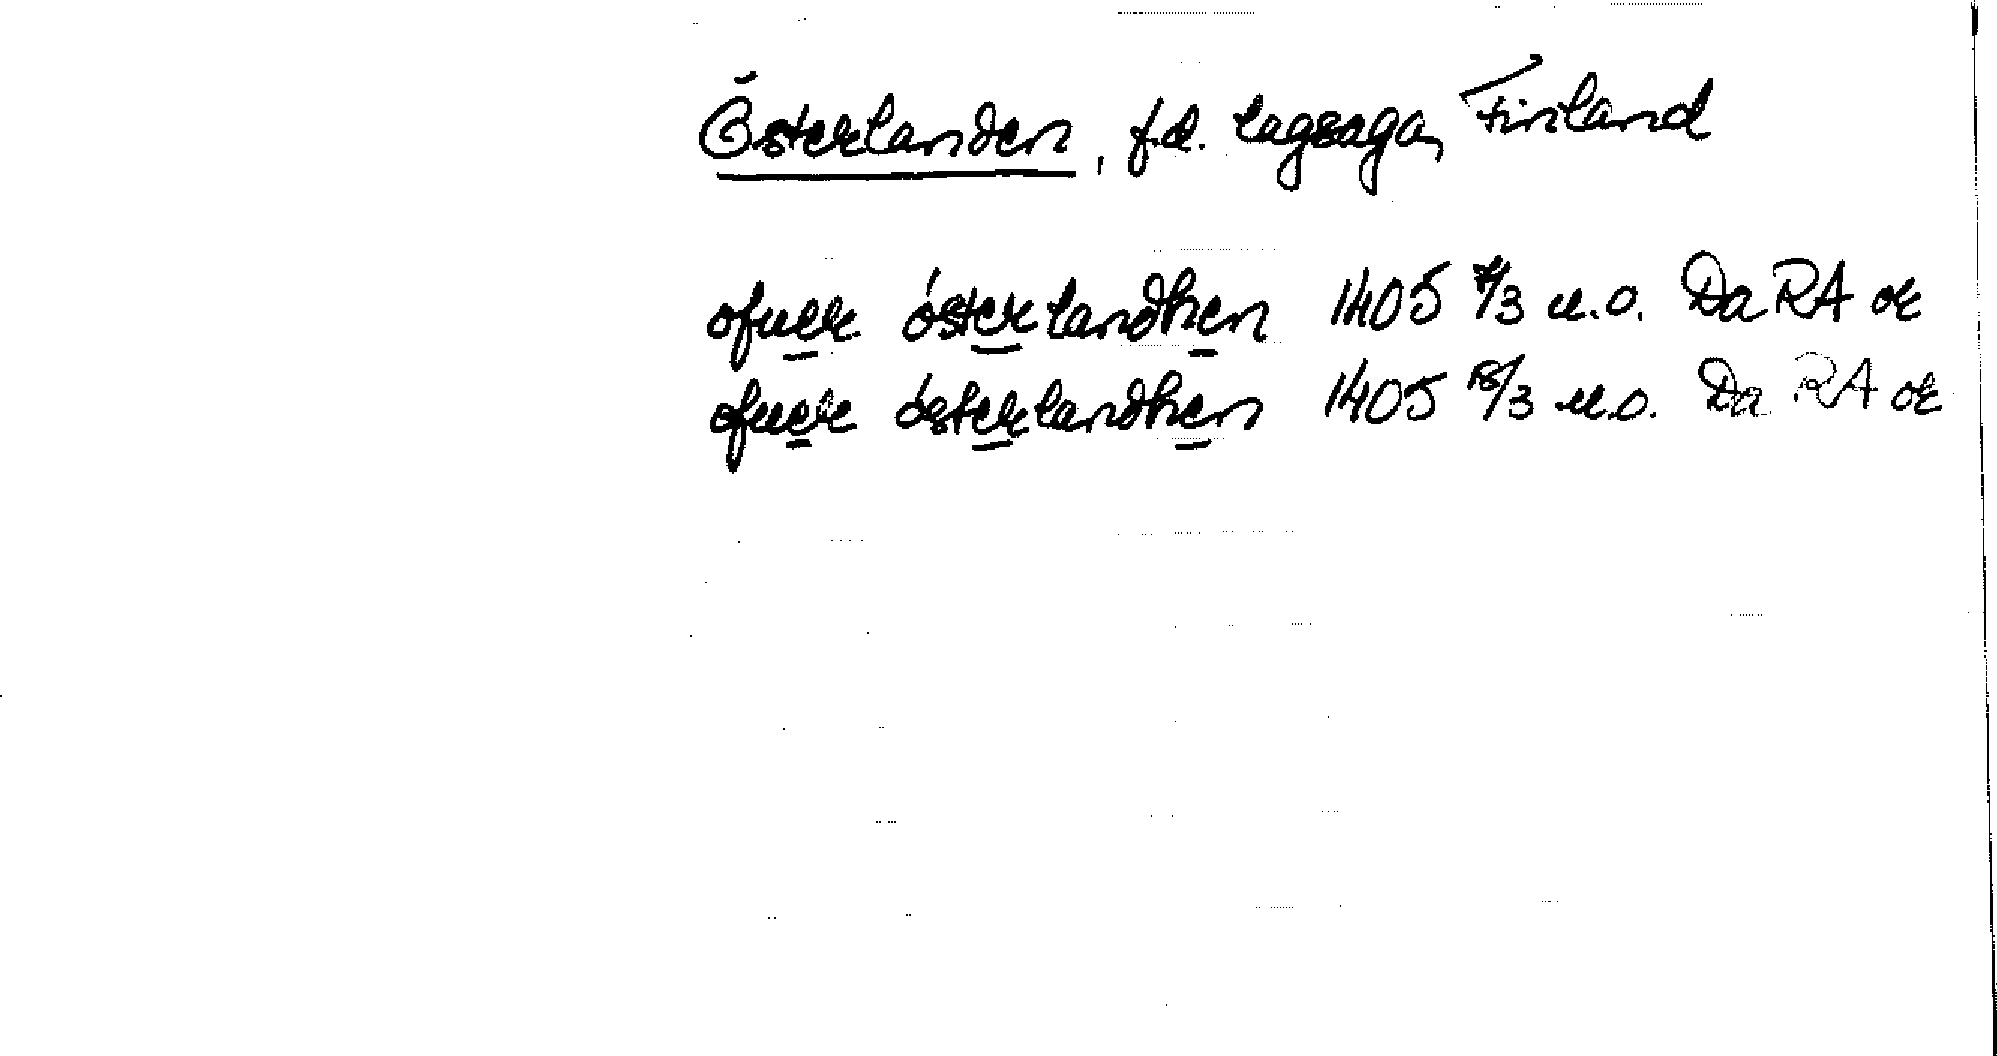 Österlanden, f.d. lagsaga, Finland
ofuer österlandhen 1405 7/3 u.o. Da RA or
ofuer österlandhen 1405 15/3 u.o. Da RA or